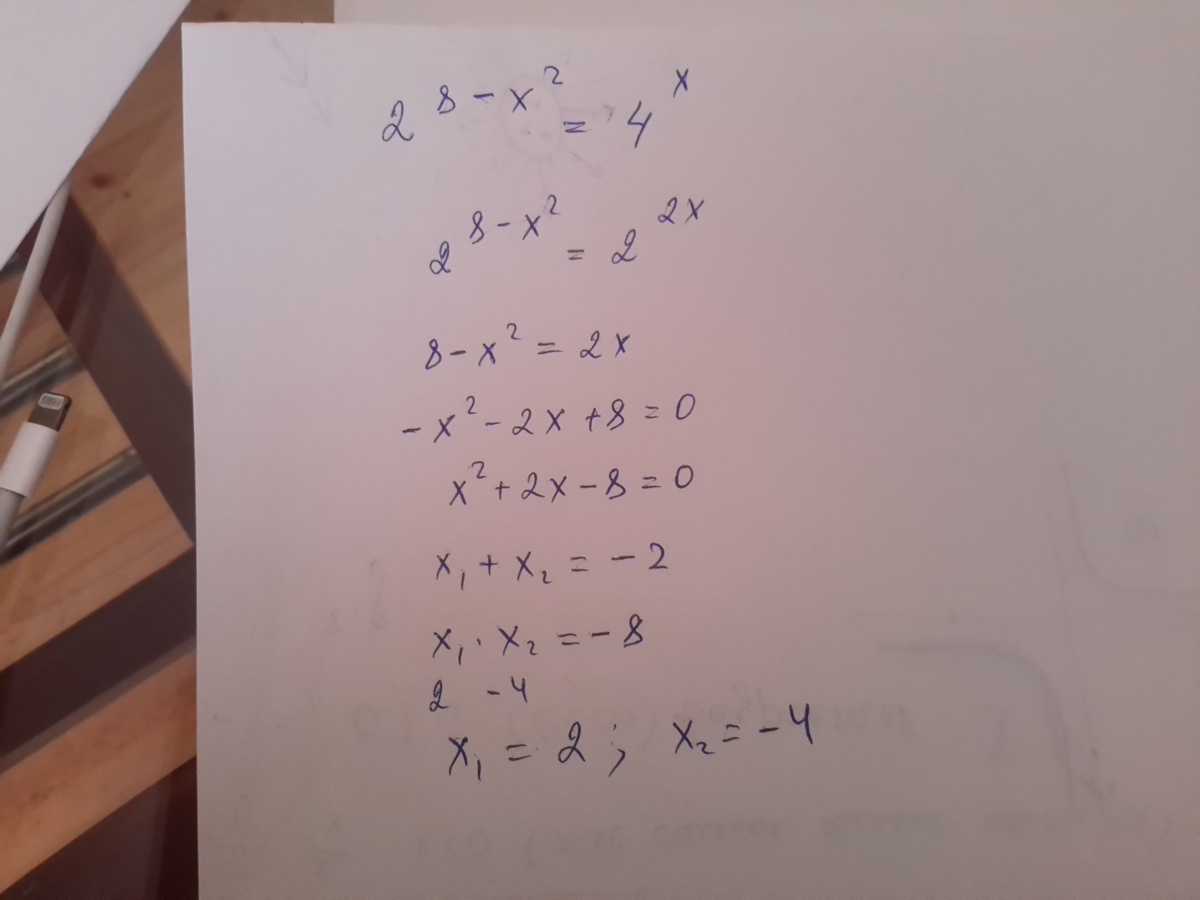 2^(8-x²) = 4^x
2^(8-x²) = 2^(2x)
8-x² = 2x
-x²-2x+8=0
x²+2x-8=0
x₁+x₂=-2
x₁·x₂=-8
2 -4
x₁=2; x₂=-4